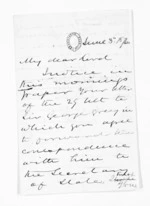 June 3 1870
My dear Lord
I notice in
this mornings
paper Your letter
of the 29 ult to
Sir George Grey in
which you agree
to forward the
correspondence
with him to
the Secretary
of State